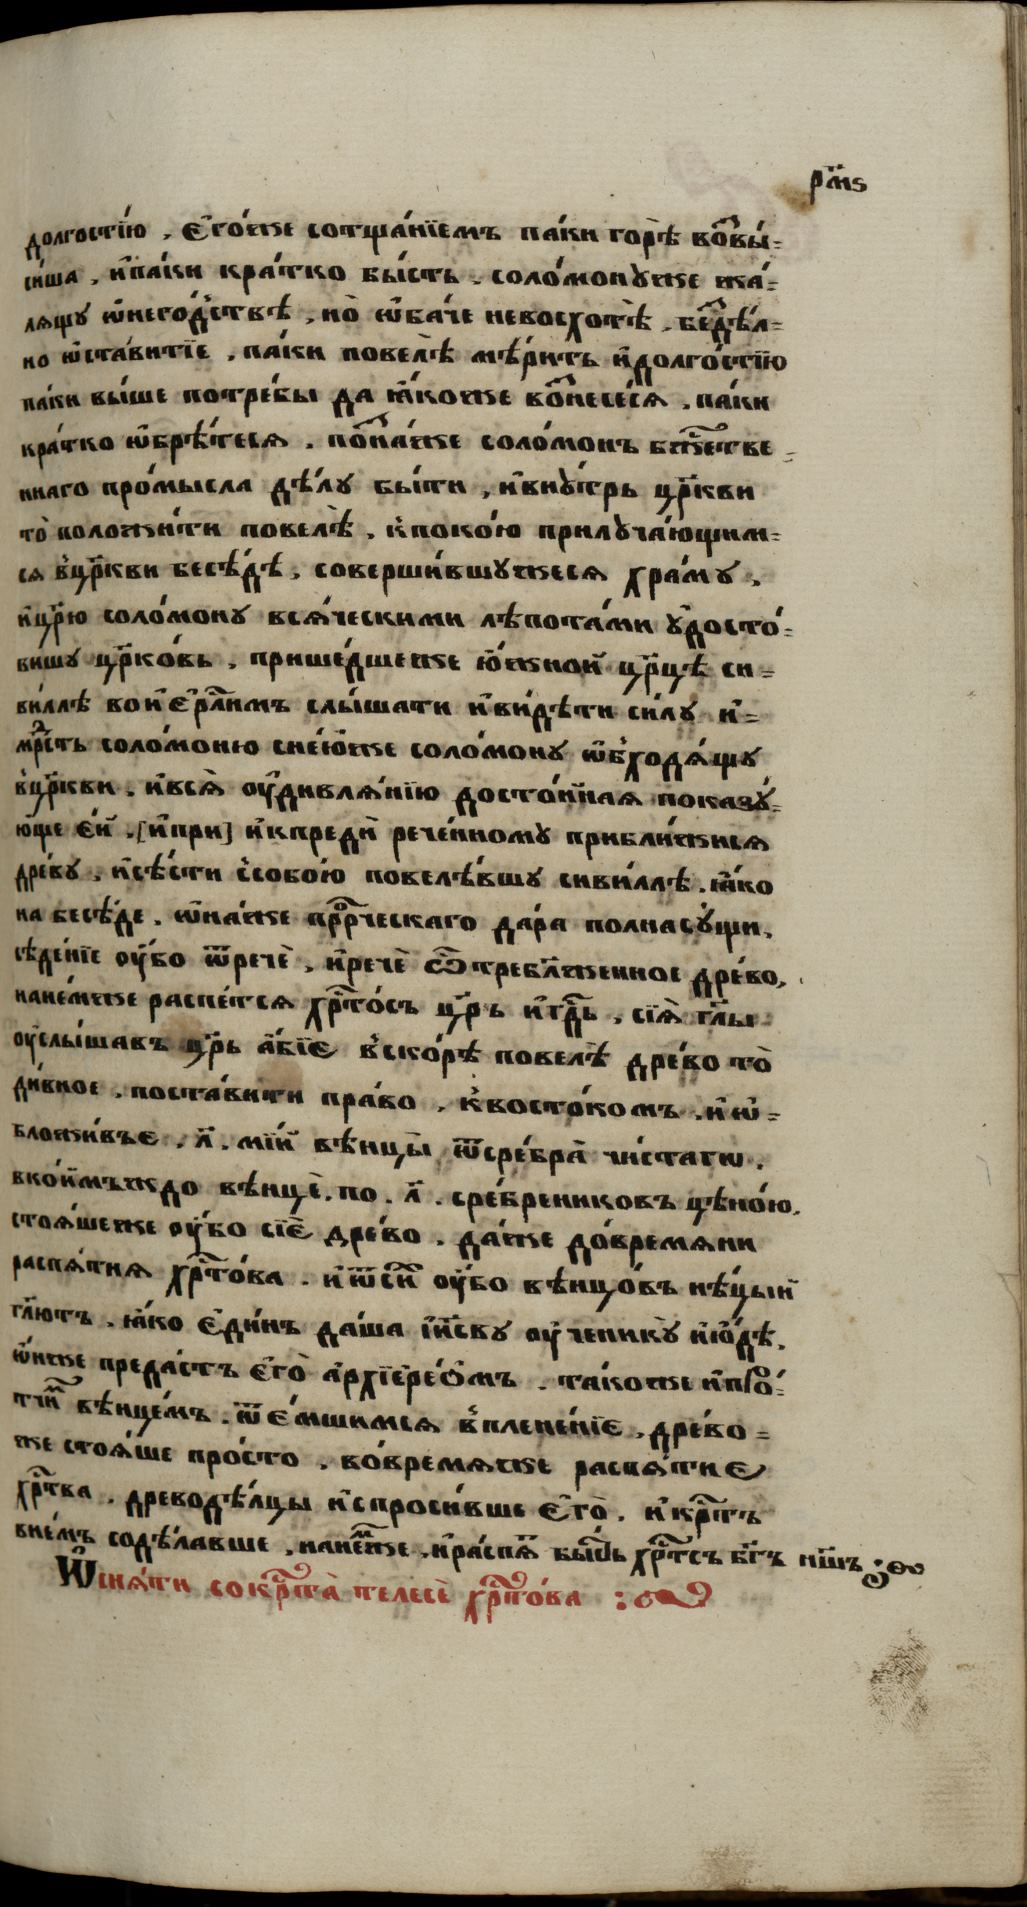 рм҃ѕ
долгостїю , єгоже сотщанїемъ паки горѣ возвы=
сиша , ипаки кратко бысть . соломонꙋже жа=
лящу ѡнегодствѣ , но ѡбаче невосхотѣ . бездѣл=
но ѡставитїе , паки повелѣ мѣрить идолгостїю
паки выше потребы да ꙗкоже вознесеся . паки
кратко ѡбрѣтеся . познаже соломонъ бж҃естве=
ннаго промысла дѣлу быти , ивнꙋтрь цр҃кви
то положити повелѣ . кпокою прилꙋчающим=
ся вцр҃кви бесѣдѣ , совершившужеся храму ,
ицр҃ю соломону всяческими лѣпотами удосто=
вишу цр҃ковь , пришедшеже южной цр҃цѣ си=
виллѣ воиєрл҃имъ слышати ивидѣти силу и=
мр҃сть соломоню снеюже соломону ѡбходящу
вцр҃кви . ився оудивлянїю достойная показу=
юще єй . [ипри] икпреди реченному приближися
древу , исѣсти ссобою повелѣвшу сивиллѣ . ꙗко
на бесѣде . ѡнаже пр҃рческаго дара полнасꙋщи ,
вѣденїе оубо ѿрече , ирече ѽ требл҃женное древо ,
нанемже распется хр҃тосъ цр҃ь игд҃ь , сїя гл҃ы
оуслышавъ цр҃ь абїє вскорѣ повелѣ древо то
дивное . поставити право , квостокомъ . иѡ=
бложивъє . л҃ . мїй вѣнцы ѿсребра чистагѡ .
вкоймъждо вѣнце . по . л҃ . сребрениковъ цѣною ,
стояшеже оубо сїє древо . даже довремяни
распятия хр҃това . иѿсих оубо вѣнцовъ нѣцый
гл҃ютъ . ꙗко єдинъ даша ії҃сву оученикꙋ июдѣ ,
ѡнже предастъ єго архїєреѡмъ . такоже ипро=
тчим вѣнцемъ . ѿємшимся впленєнїє , древо=
же стояше просто , вовремяже распятиє
хр҃тва . древодѣлцы испросивше єго . икрⷭ҇тъ
внемъ содѣлавше , нанемже . ираспят бысть хр҃тсъ бг҃ъ нш҃ъ :
Ѡснятии сокрⷭ҇та телесе хр҃това :